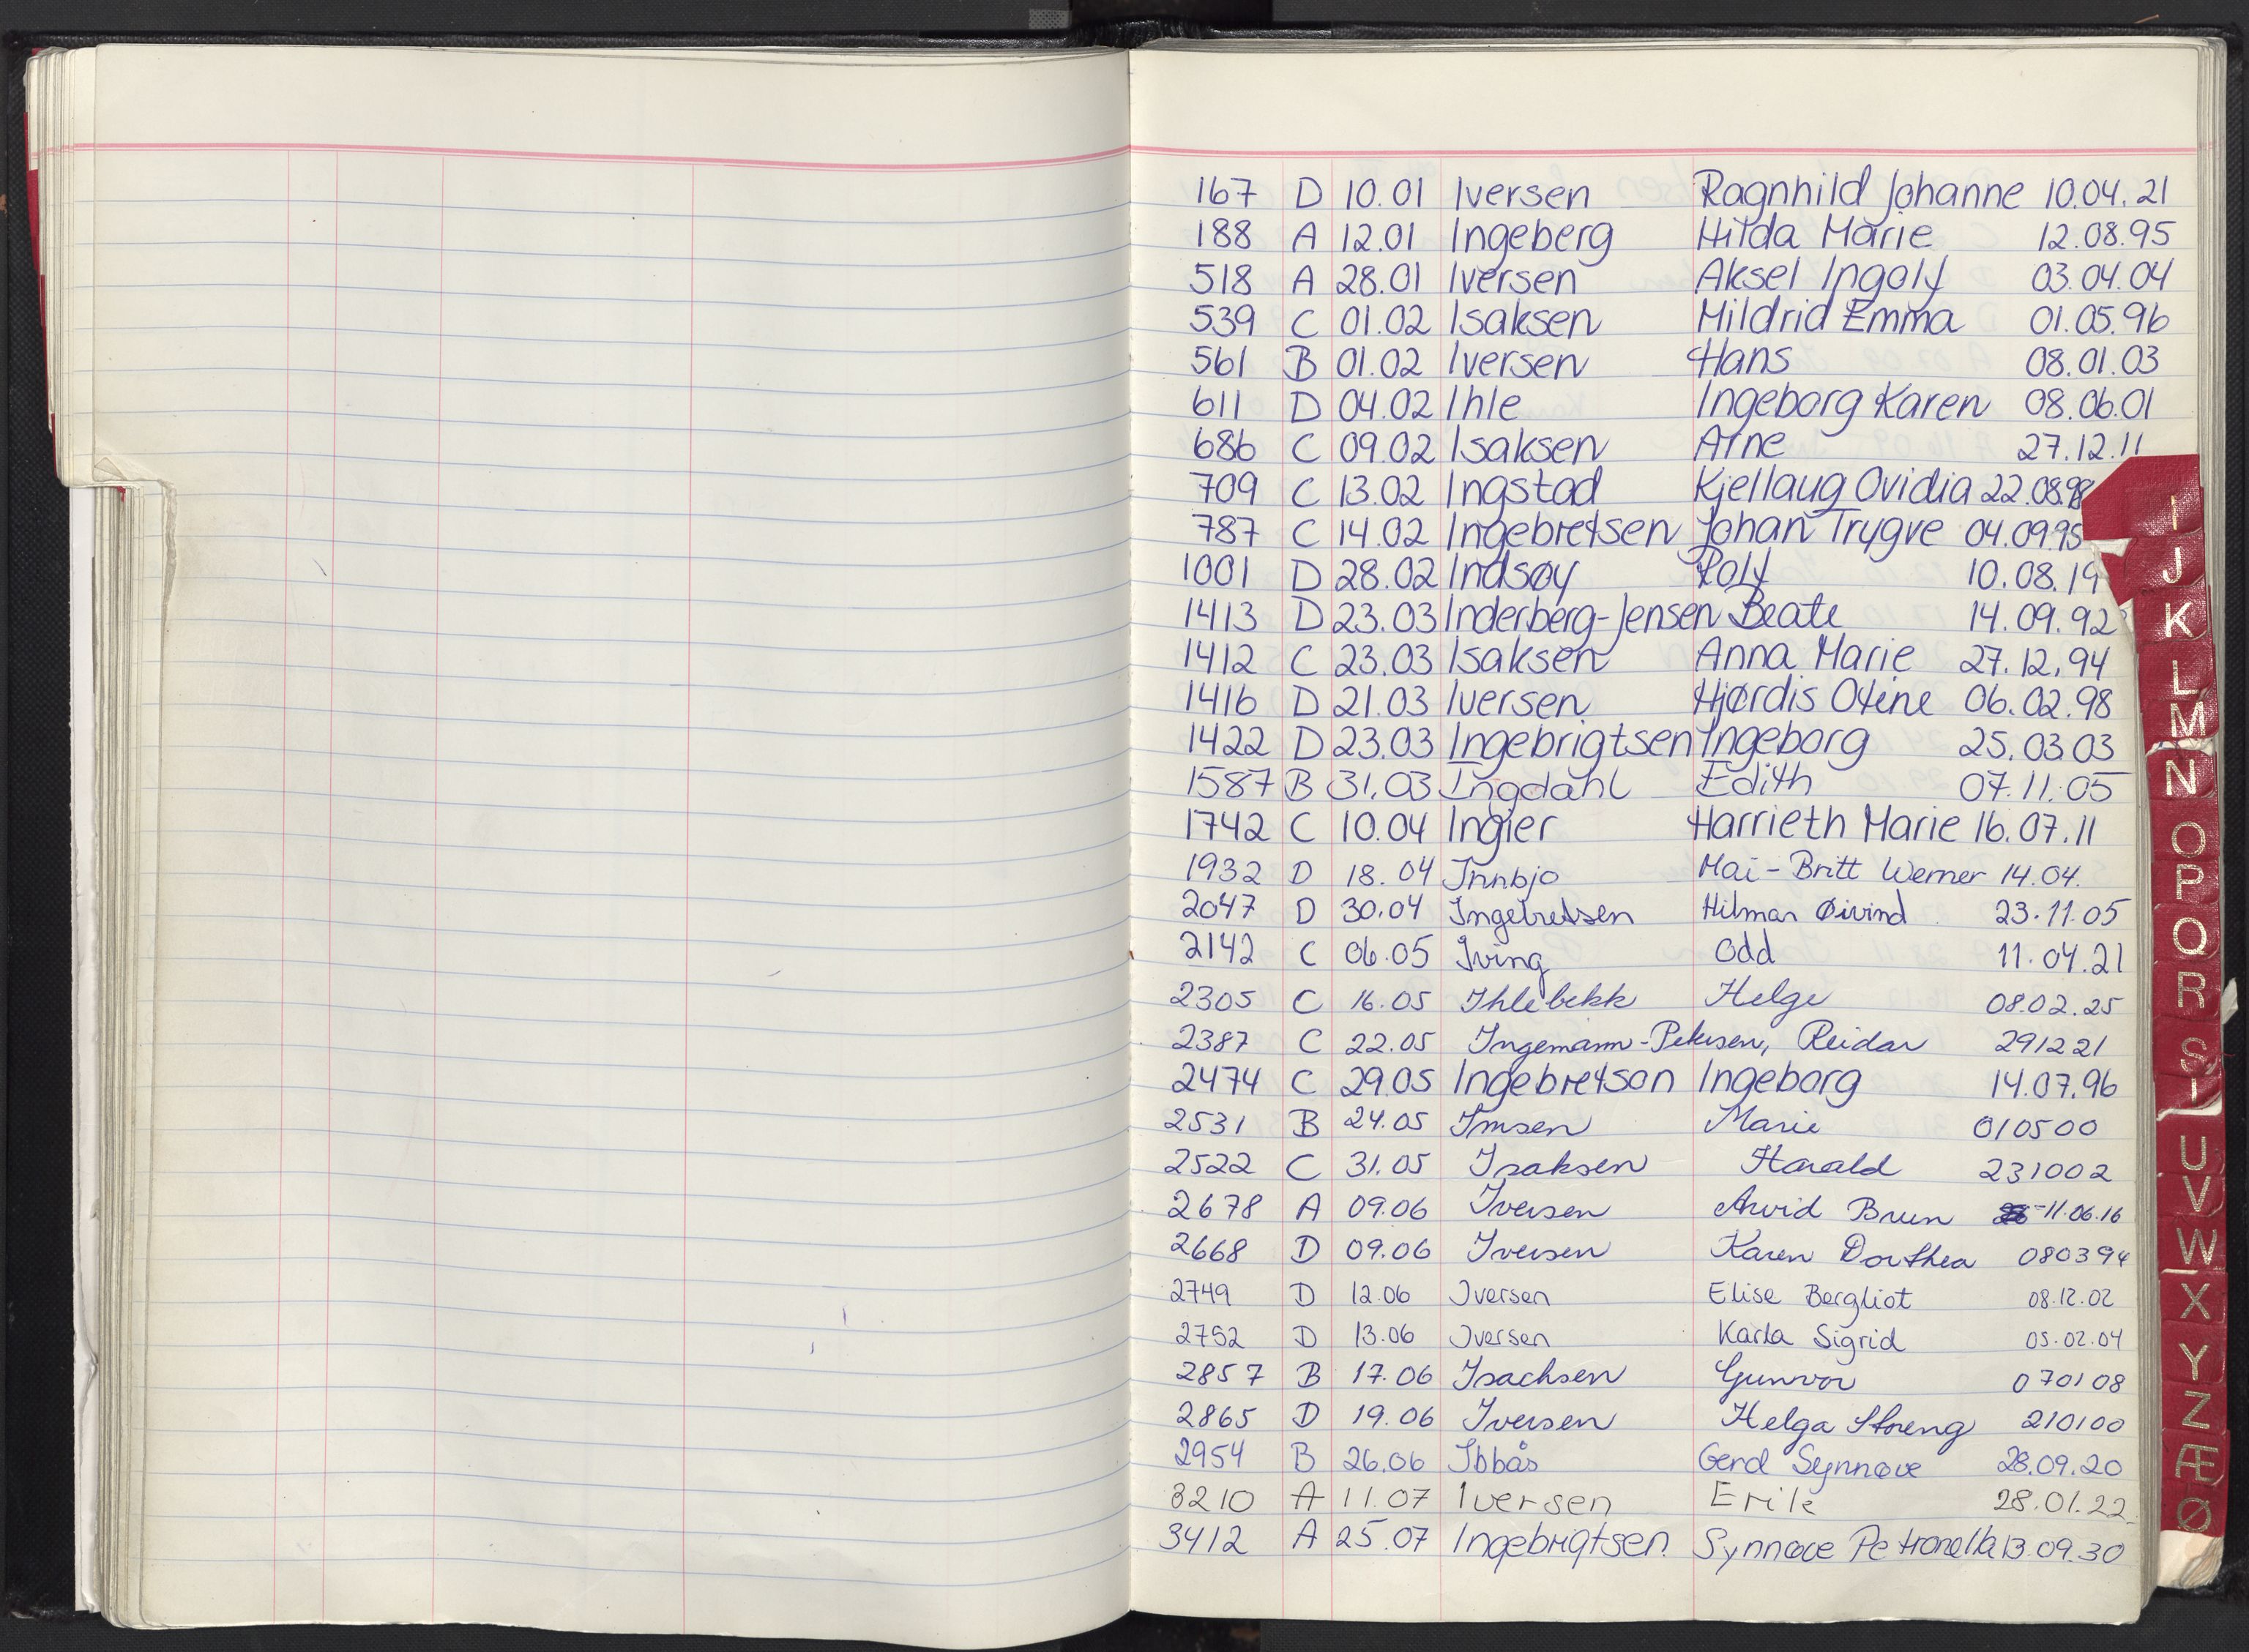 167 D 10.01 Iversen Ragnhild Johanne 10.04.21
188 A 12.01 Ingeberg Hilda Marie 12.08.95
518 A 28.01 Iversen Aksel Ingolf 03.04.04
539 C 01.02 Isaksen Mildrid Emma 01.05.96
561 B 01.02 Iversen Hans 08.01.03
611 D 04.02 Ihle Ingeborg Karen 08.06.01
686 C 09.02 Isaksen Arne 27.12.11
709 C 13.02 Ingstad Kjellaug Ovidia 22.08.98
787 C 14.02 Ingebretsen Johan Trygve 04.09.95
1001 D 28.02 Indsøy Rolf 10.08.19
1413 D 23.03 Inderberg-Jensen Beate 14.09.92
1412 C 23.03 Isaksen Anna Marie 27.12.94
1416 D 21.03 Iversen Hjørdis Otine 06.02.98
1422 D 23.03 Ingebrigtsen Ingeborg 25.03.03
1587 B 31.03 Ingdahl Edith 07.11.05
1742 C 10.04 Ingier Harrieth Marie 16.07.11
1932 D 18.04 Innbjo Mai-Britt Werner 14.04.
2047 D 30.04 Ingebretsen Hilmar Øivind 23.11.05
2142 C 06.05 Iving Odd 11.04.21
2305 C 16.05 Ihlebekk Helge 08.02.25
2387 C 22.05 Ingemann-Petersen, Reidar 291221
2474 C 29.05 Ingebretson Ingeborg 14.07.96
2531 B 24.05 Imsen Marie 010500
2522 C 31.05 Isaksen Harald 231002
2678 A 09.06 Iversen Arvid Brun 11.06.16
2668 D 09.06 Iversen Karen Dorthea 080394
2749 D 12.06 Iversen Elise Bergliot 08.12.02
2752 D 13.06 Iversen Karla Sigrid 05.02.04
2857 B 17.06 Isachsen Gunvor 070108
2865 D 19.06 Iversen Helga Storeng 210100
2954 B 26.06 Ibbås Gerd Synnøve 28.09.20
3210 A 11.07 Iversen Erik 28.01.22
3412 A 25.07 Ingebrigtsen Synnøve Petronella 13.09.30
I
J
K
L
M
N
O
P
Q
R
S
T
U
V
W
X
Y
Z
Æ
Ø